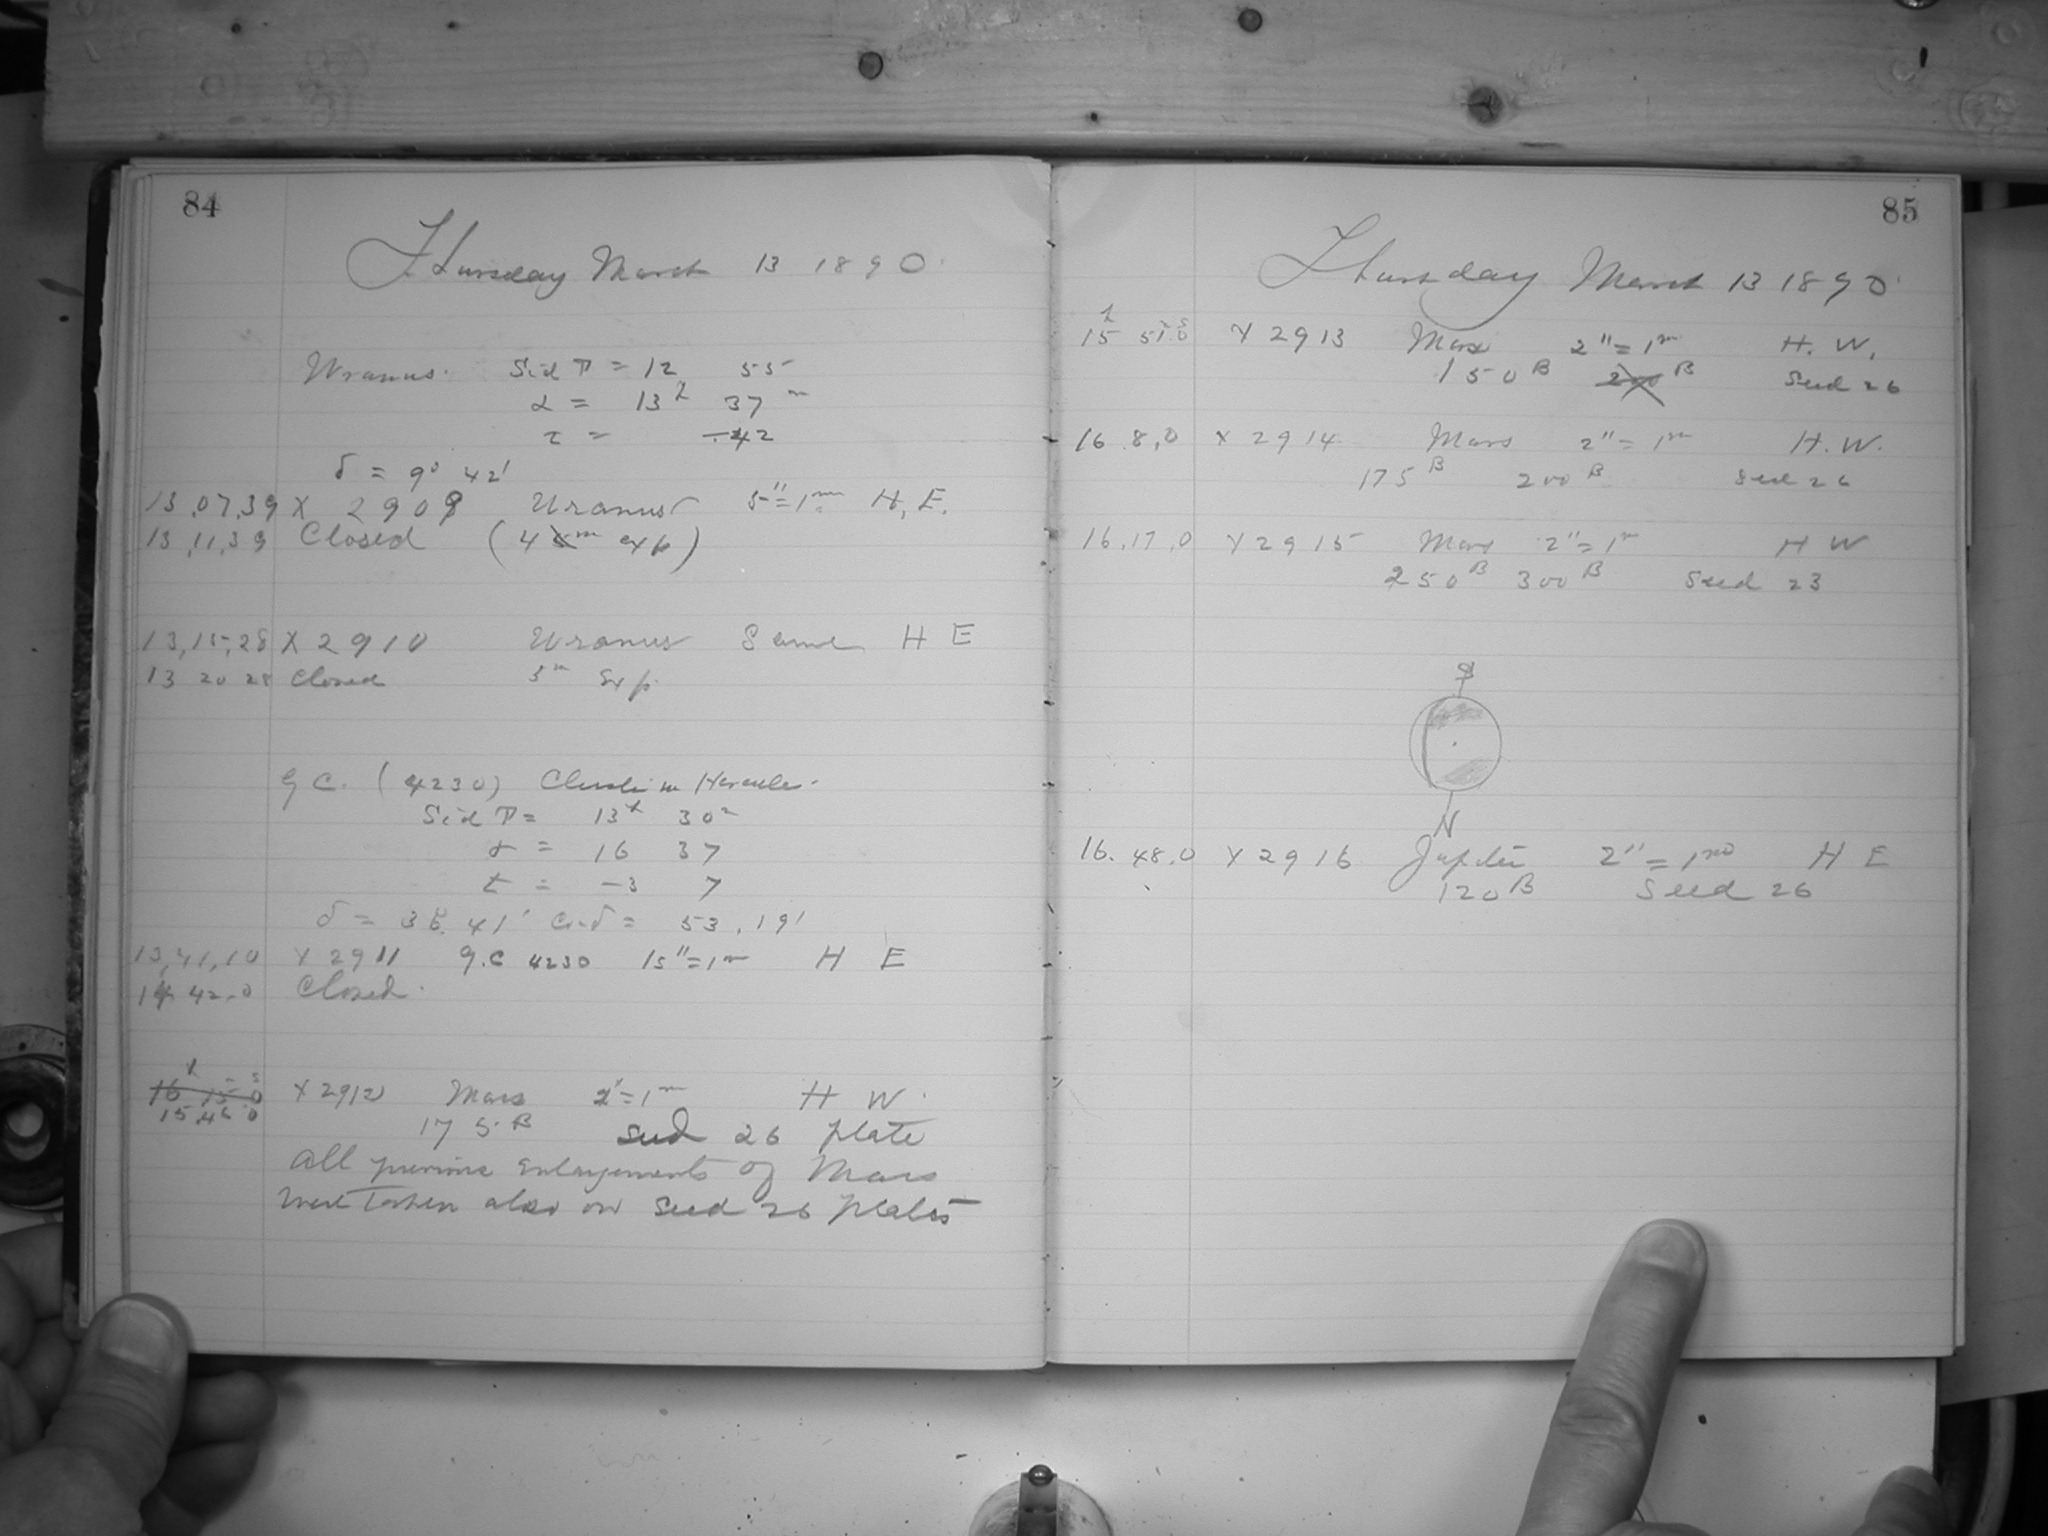 84
Thursday March 13 1890.
Uranus. Sid T = 12 55
α = 13h 37m
τ = -42
δ = 9° 42'
13,07,39 X 2909 Uranus 5"=1m H, E.
13,11,39 Closed (4 m exp)
13,15,28 X 2910 Uranus Same H E
13 20 28 Closed 5m Exp.
G C. (4230) Cluster in Hercules.
Sid T = 13h 30m
α = 16 37
t = -3 7
δ = 36. 41' Co-δ = 53. 19'
13,41,10 X 2911 G.C 4230 15"=1m H E
14 42.0 Closed.
16 15 0
15,46 0 X 2912 Mars 2"=1m H W.
175 B Seed 26 plate
All previous enlargements of Mars
were taken also on Seed 26 plates
85
Thursday March 13 1890.
15h 51 0s X 2913 Mars 2"=1m H. W.
150 B 200 B Seed 26
16 8,0 X 2914 Mars 2"=1m H. W.
175 B 200 B Seed 26
16,17,0 X 2915 Mars 2"=1m H W
250 B 300 B Seed 23
S
N
16. 48.0 X 2916 Jupiter 2"=1m H E
120 B Seed 26